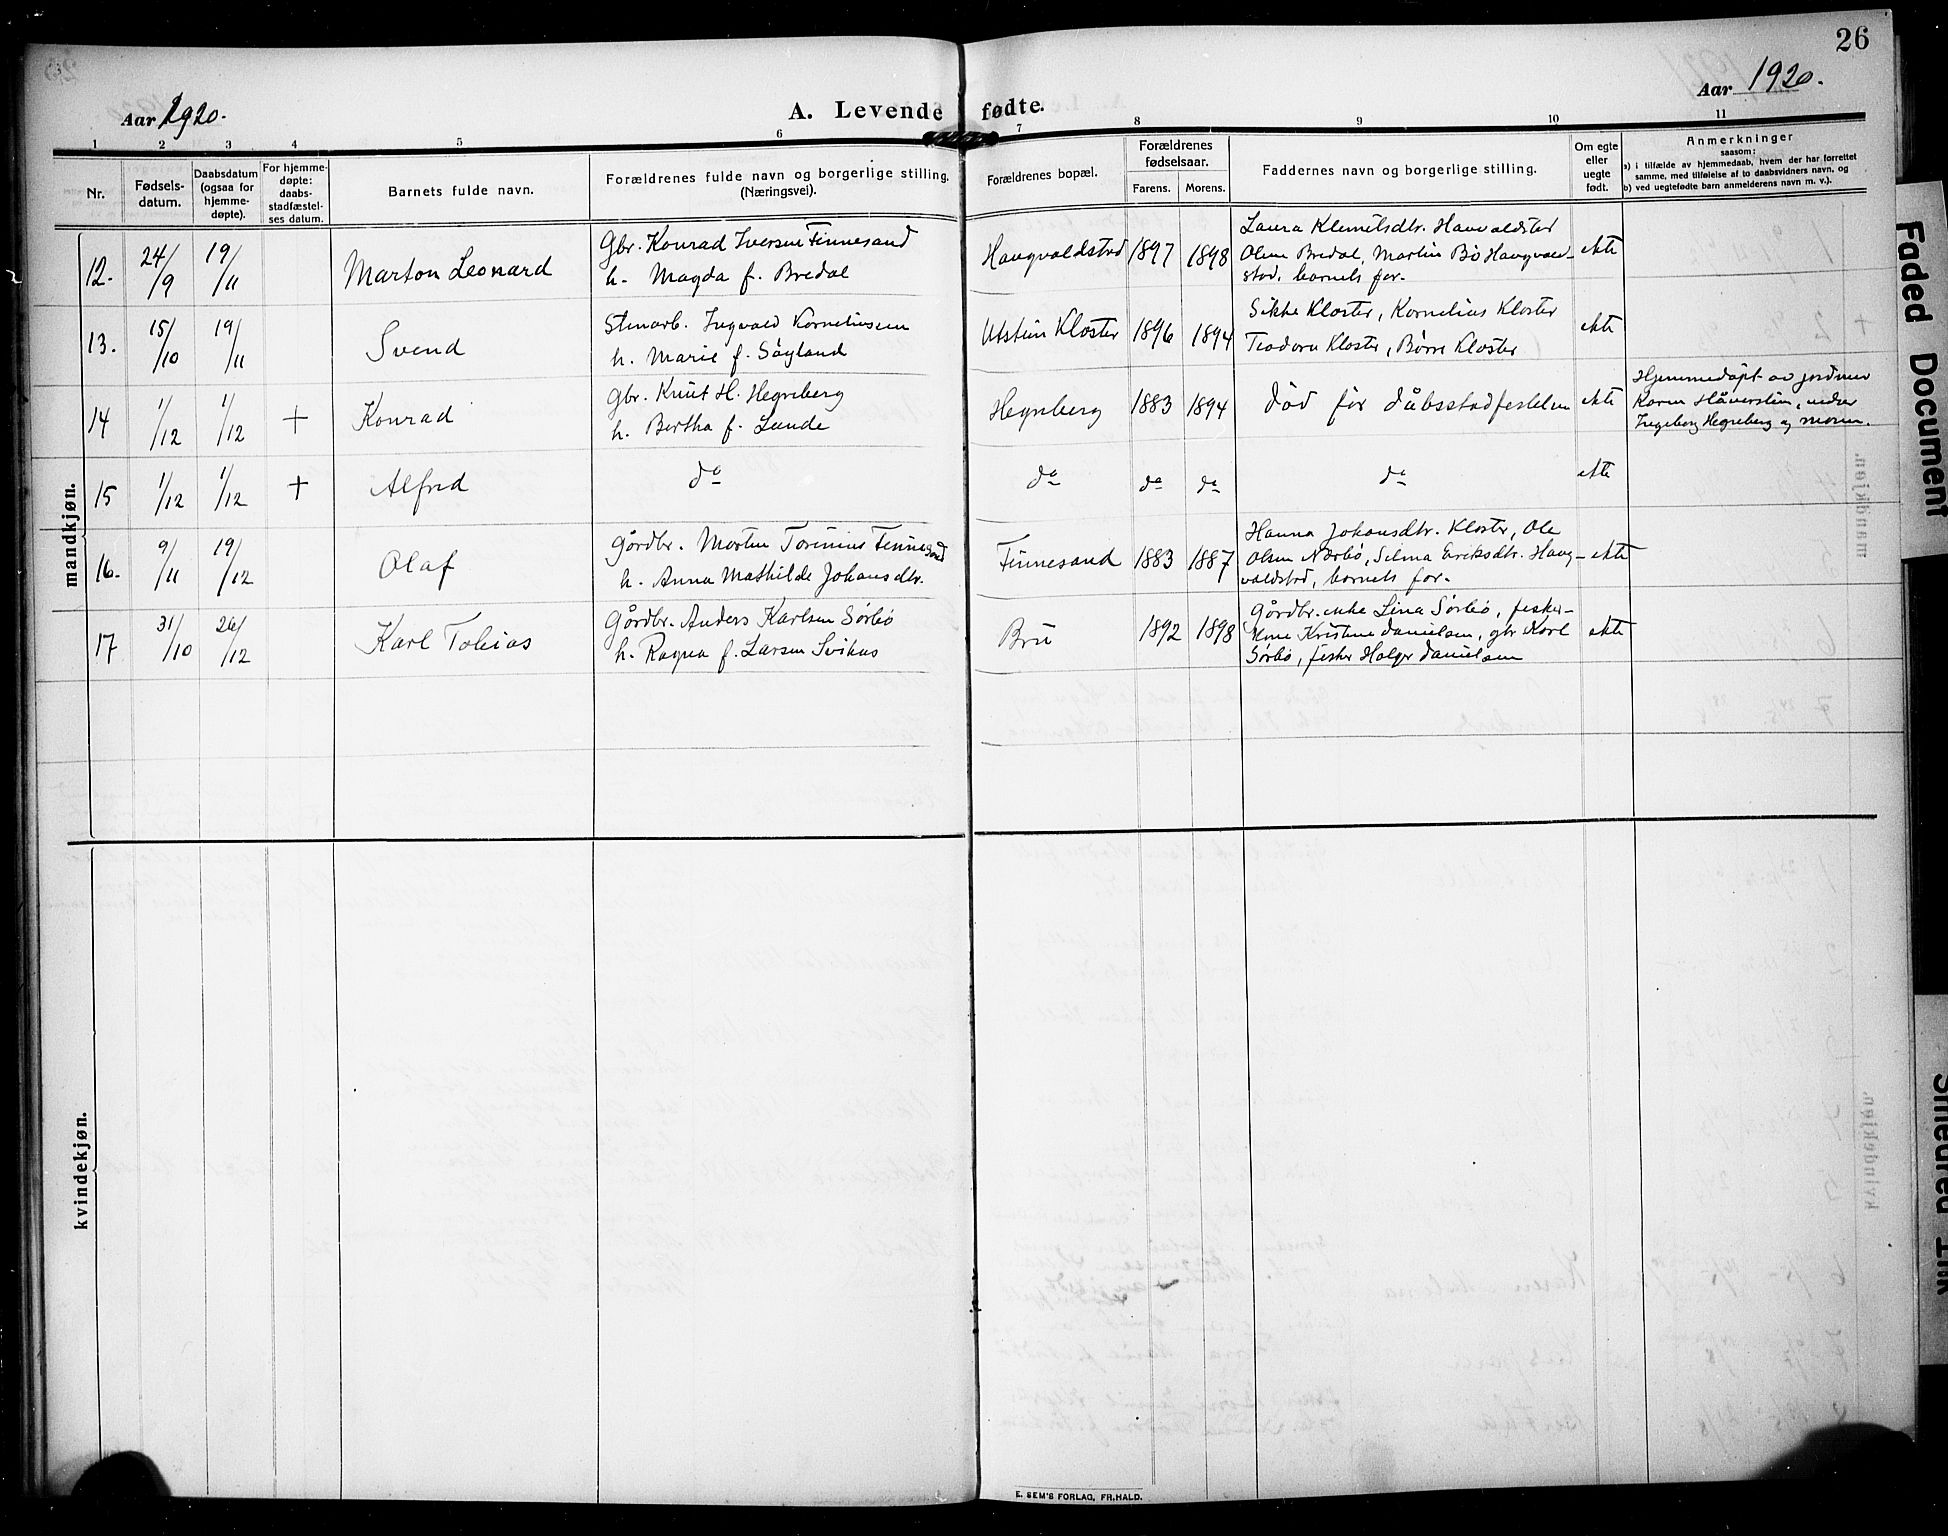 26
Aar 1920.
A. Levende fødte.
Aar 1920.
1 2 3 4 5 6 7 8 9 10 11
Nr.
Fødsels-
datum.
Daabsdatum
(ogsaa for
hjemme-
døpte).
For hjemme-
døpte:
daabs-
stadfæstel-
ses datum.
Barnets fulde navn.
Forældrenes fulde navn og borgerlige stilling.
(Næringsvei).
Forældrenes bopæl.
Forældrenes
fødselsaar.
Farens. Morens.
Faddernes navn og borgerlige stilling.
Om egte
eller
uegte
født.
Anmerkninger
saasom:
a) i tilfælde av hjemmedaab, hvem der har forrettet
samme, med tilføielse af to daabsvidners navn, og
b) ved uegtefødte barn anmelderens navn m. v.).
mandkjøn.
12. 24/9 19/11 Marton Leonard
Gbr. Konrad Iversen Finnesand
h. Magda f. Bredal
Haugvaldstad 1897 1898
Laura Klemetsdtr. Hauvaldstad
Olene Bredal, Martin Bø Haugvald-
stad, barnets far.
ekte
13. 15/10 19/11 Svend
Stenarb. Ingvald Korneliussen
h. Marie f. Søyland
Utstein Kloster 1896 1894
Sikke Kloster, Kornelius Kloster
Teodora Kloster, Børre Kloster
ekte
14 1/12 1/12 + Konrad
Gbr. Knut H. Hegreberg
h. Bertha f. Lunde
Hegreberg 1883 1894
død før dåbsstadfestelsen
ekte
Hjemmedøpt av jordmor
Karen Håverstein, under
Ingeborg Hegreberg og moren.
15 1/12 1/12 + Alfred
do
do do do
do
ekte
16. 9/11 19/12 Olaf
Gårdbr. Morten Torenius Finnesand
h. Anna Mathilde Johansdtr.
Finnesand 1883 1887
Hanna Johansdtr. Kloster, Ole
Olsen Nærbø, Selma Eriksdtr. Haug-
valdstad, barnets far.
ekte
17 31/10 26/12 Karl Tobias
Gårdbr. Anders Karlsen Sørbø
h. Ragna f. Larsen Svihus
Bru 1892 1898
Gårdbr.enke Lina Sørbø, fisker-
kone Kristine Danielsen, gbr Karl
Sørbø, fisker Holger Danielsen
ekte
kvindekjøn.
E. SEM'S FORLAG, FR.HALD.
Faded Document